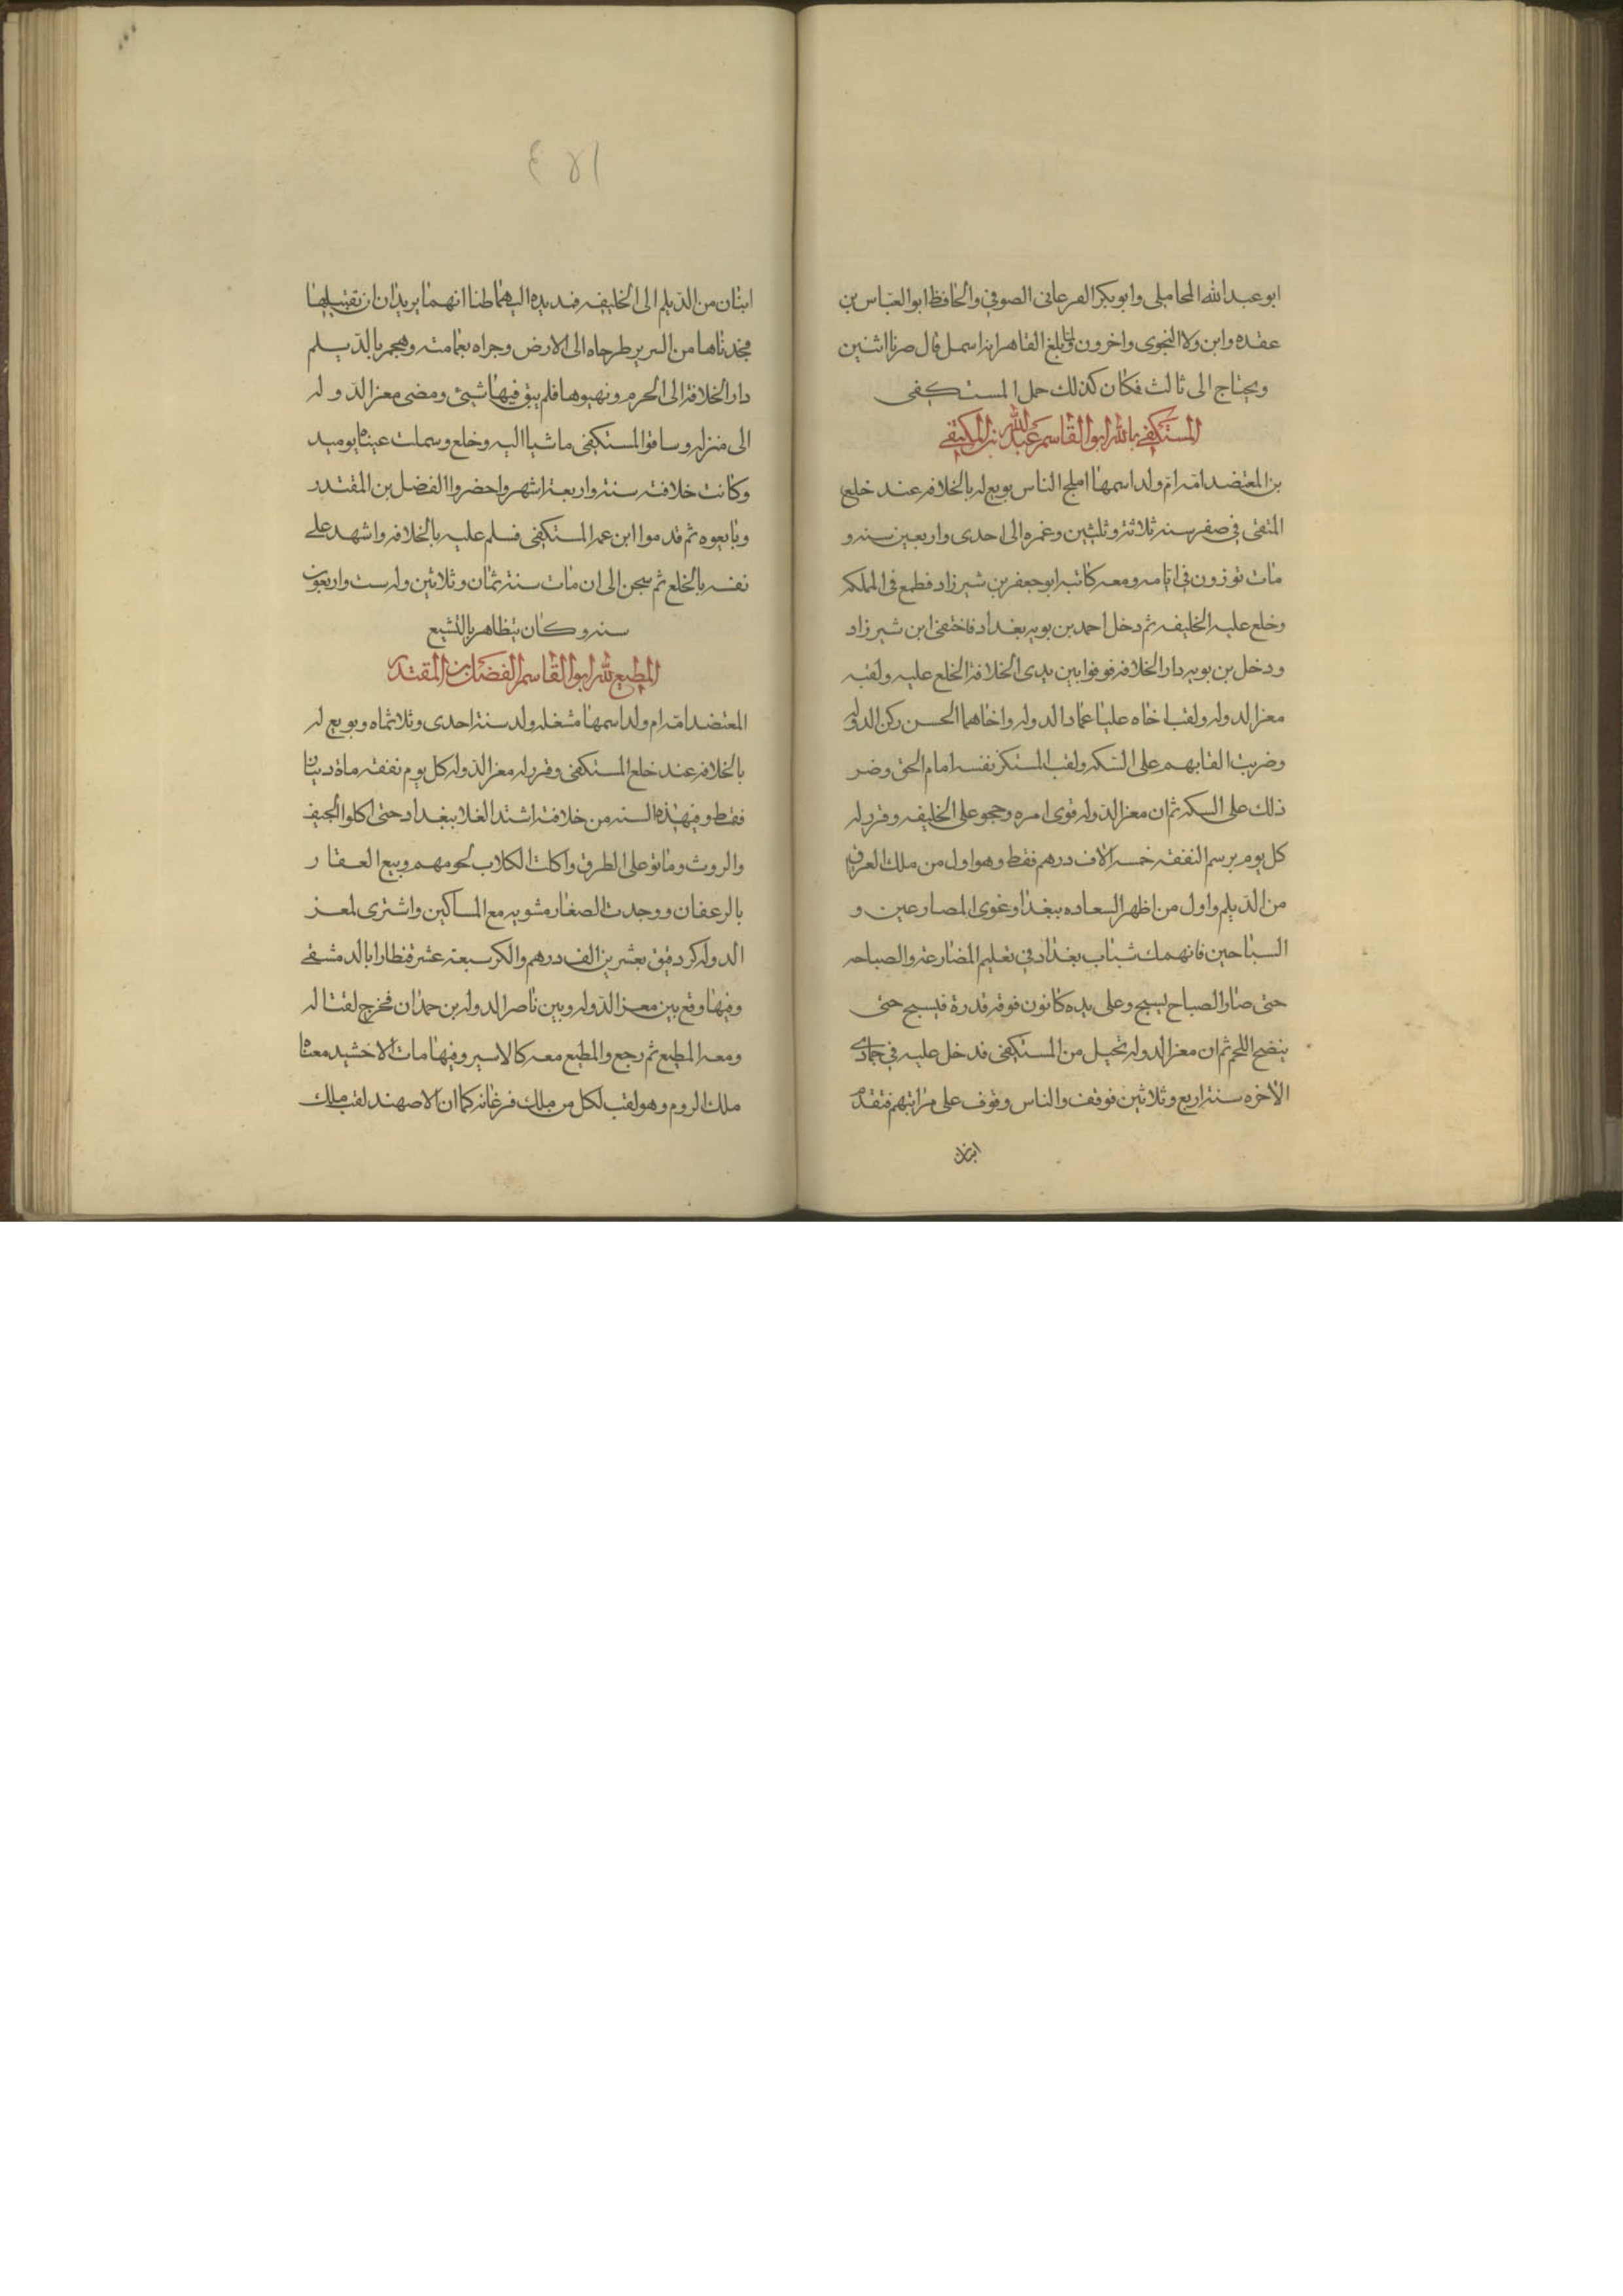 ابو عبد الله المحاملى وابو بكر الفرغانى الصوفى والحافظ ابو العباس بن
عقده وابن ولاد النحوى واخرون ولما بلغ القاهر انه اسمل قال صرنا اثنين
ويحتاج الى ثالث فكان كذلك حمل المستكفى
المستكفى بالله ابو القاسم عبد الله بن المكتفى
بن المعتضد امه ام ولد اسمها املح الناس بويع له بالخلافه عند خلع
المتقى فى صفر سنه ثلاثة وثلثين وعمره الى احدى واربعين سنه و
مات توزون فى ايامه ومعه كاتبه ابو جعفر بن شيرزاد فطمع فى المملكه
وخلع عليه الخليفه ثم دخل احمد بن بويه بغداد فاختفى ابن شيرزاد
ودخل بن بويه دار الخلافه فوقوا بين يدى الخلافة الخلع عليه ولقبه
معز الدوله ولقب اخاه عليا عماد الدوله واخاهما الحسن ركن الدوله
وضربت القابهم على السكه ولقب المستكفى نفسه امام الحق وضر
ذلك على السكه ثم ان معز الدوله قوى امره وحجر على الخليفه وقرر له
كل يوم برسم النفقه خمسه الاف درهم فقط وهو اول من ملك العراق
من الديلم واول من اظهر السعاده ببغداد وغوى المصارعين و
السباحين فانهمك شباب بغداد فى تعليم المضارعة والصباحه
حتى صار الصباح يسبح وعلى يده كانون فوقه قدرة فيسبح حتى
ينضج اللحم ثم ان معز الدوله تخيل من المستكفى فدخل عليه فى جمادى
الاخره سنة اربع وثلاثين فوقف والناس وقوف على مراتبهم فتقدم
ابنان
٤٥١
ابنان من الديلم الى الخليفه فمد يده اليهما ظنا انهما يريدان تقبيلها
فجذباها من السرير طرحاه الى الارض وجراه بعمامته وهجم بالديلم
دار الخلافة الى الحرم ونهبوها فلم يبق فيها شيئ ومضى معز الدوله
الى منزله وساقوا المستكفى ماشيا اليه وخلع وسملت عيناه يوميد
وكانت خلافته سنة واربعة اشهر واحضروا الفضل بن المقتدر
وبايعوه ثم قدموا ابن عمه المستكفى فسلم عليه بالخلافه واشهد على
نفسه بالخلع ثم سجن الى ان مات سنة ثمان وثلاثين وله ست واربعون
سنه وكان يتظاهر بالتشيع
المطيع لله ابو القاسم الفضل بن المقتدر
المعتضد امه ام ولد اسمها مشغله ولد سنة احدى وثلاثماه وبويع له
بالخلافه عند خلع المستكفى وقرر له معز الدوله كل يوم نفقه ماة دينار
فقط وفى هذه السنه من خلافته اشتد الغلا ببغداد حتى اكلوا الجيف
والروث وماتو على الطرق واكلت الكلاب لحومهم وبيع العقار
بالرعفان ووجدت الصغار مشويه مع المساكين واشترى لمعز
الدوله كر دقيق بعشرين الف درهم والكر سبعة عشر قنطارا بالدمشقى
وفيها وقع بين معز الدوله وبين ناصر الدوله بن حمدان فخرج لقتاله
ومعه المطيع ثم رجع والمطيع معه كالاسير وفيها مات الاخشيد معناه
ملك الروم وهو لقب لكل من ملك فرغانه كما ان الاصهند لقب ملك